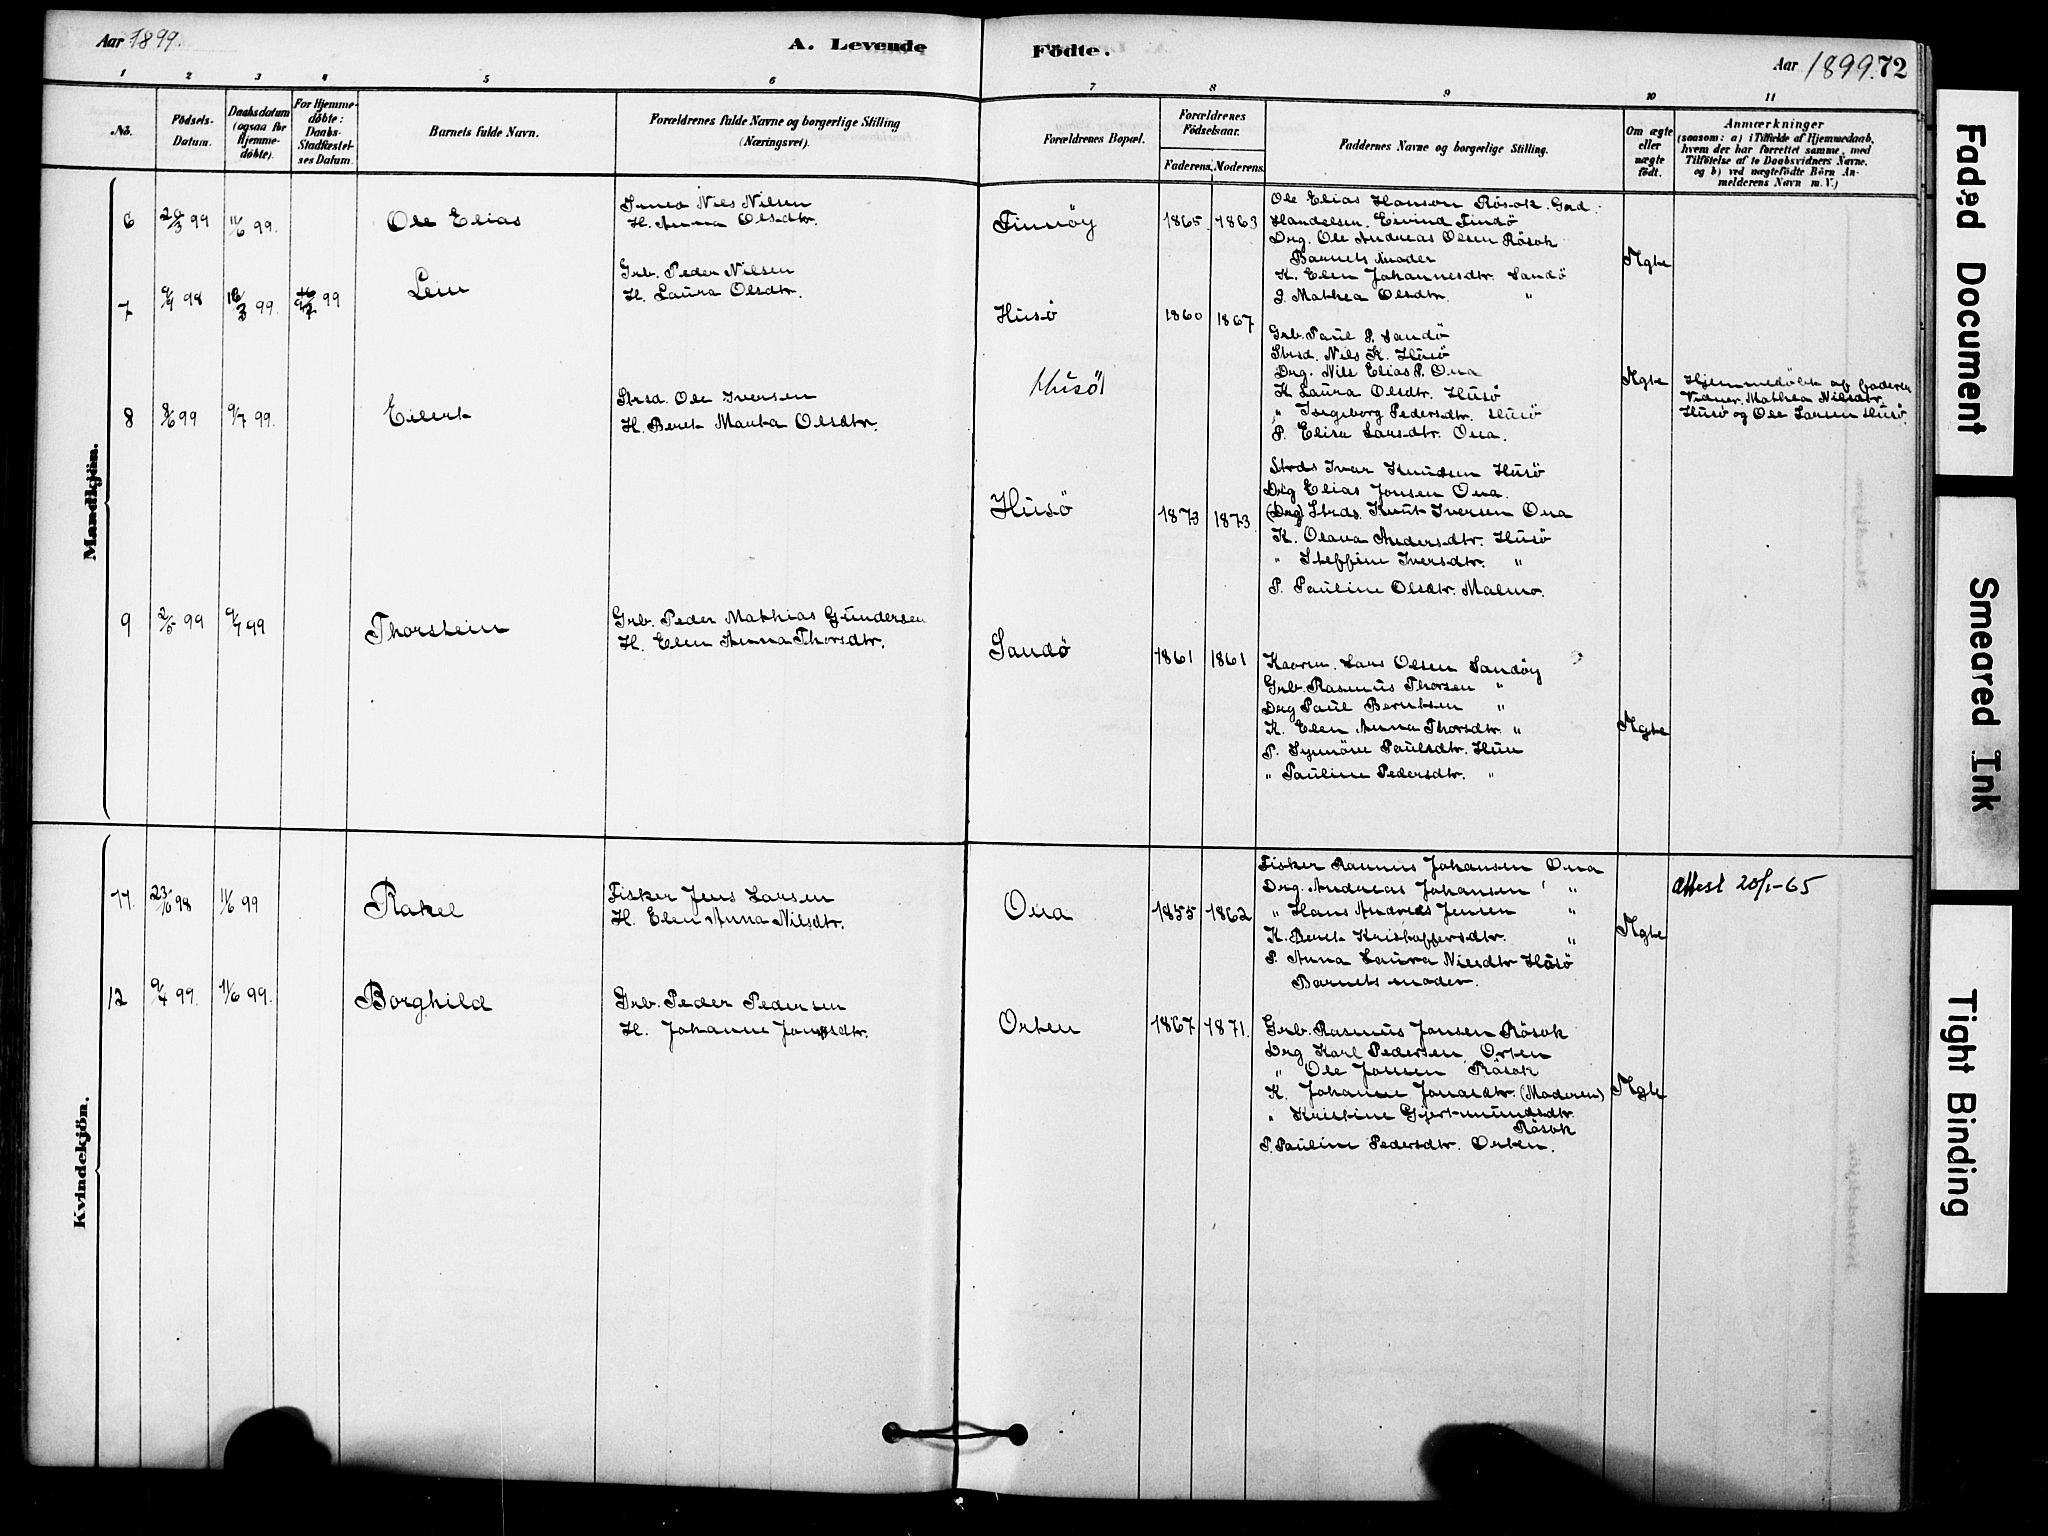 Aar 1899.
A. Levende
Födte.
Aar 1899. 72
1 2 3 4 5 6 7 8 9 10 11
No.
Födsels-
Datum.
Daabsdatum
(ogsaa for
Hjemme-
döbte).
For Hjemme-
döbte:
Daabs-
Stadfæstel-
ses Datum.
Barnets fulde Navn.
Forældrenes fulde Navne og borgerlige Stilling
(Næringsvei).
Forældrenes Bopæl.
Forældrenes
Födselsaar.
Faderens. Moderens.
Faddernes Navne og borgerlige Stilling.
Om ægte
eller
uægte
födt.
Anmærkninger
(saasom: a) i Tilfælde af Hjemmedaab,
hvem der har forrettet samme, med
Tilföielse af to Daabsvidners Navne.
og b) ved uægtefödte Börn An-
melderens Navn m. V.)
Mandkjön.
6 99 11/6 99. Ole Elias
Nils Nilsen
H. Anna Olsdtr.
Finnöy 1865. 1863
Ole Elias Hanson Rösok. Grd.
Handelsm. Eivind Findö
Drg. Ole Andreas Olsen Rösok
Barnets Moder
K. Elen Johannesdtr. Sandö
P. Mathea Olsdtr. "
Ægte
7 98 99. 99 Leiu
Grb. Peder Nilsen
H. Laura Olsdtr.
Husö 1860 1867
Grb. Paul P. Sandö
Strsd. Nils K. Husö
Drg. Nils Elias P. Ona
K Laura Olsdtr. Husö
" Ingeborg Pedersdtr. Husö
P. Elise Larsdtr. Ona.
Ægte
Hjemmedöbt af faderen
Vidner. Mathea Nilsdtr.
Husö og Ole Larsen Husö.
Husö
8 8/6 99 9/7 99. Eilert
Strsd. Ole Iversen
H. Beret Marta Olsdtr.
Husö 1873 1873
Strds Ivar Knudsen Husö
Drg Elias Jonsen Ona.
(Drg) Strds. Knut Iversen Ona
K. Olava Andersdtr. Husö
" Steffine Iversdtr. "
P. Pauline Olsdtr. Malmo.
9 2/5 99 9/7 99 Thorstein
Grb. Peder Mathias Gundersen
H. Elen Anna Thorsdtr.
Sandö 1861 1861
Lars Olsen Sandöy
Grb. Rasmus Thorsen "
Drg Paul Berntsen "
K. Elen Anna Thorsdtr. "
P. Synnöve Paulsdtr. Hun
" Pauline Pedersdtr. "
Ægte
Kvindekjön.
11. 23/6 98 11/6 99 Rakel
Fisker Jens Larsen
H. Elen Anna Nilsdtr.
Ona 1855 1862
Fisker Rasmus Johansen Ona
Drg. Andreas Johansen "
" Hans Andreas Jensen "
K. Beret Kristoffersdtr. "
P. Anna Laura Nilsdtr Husö
Barnets moder.
Ægte
Attest 20/1-65
12 9/4 99. 11/6 99. Borghild
Grb. Peder Pedersen
H. Johanne Jonasdtr.
Orten 1867 1871.
Grb. Rasmus Jonsen Rösok
Drg Karl Pedersen Orten
" Ole Jonsen Rösok
K. Johanne Jonasdtr. (Moderen)
" Kristine Gjertmundsdtr.
Rösok
P. Pauline Pedersdtr. Orten.
Ægte
Faded Document
Smeared Ink
Tight Binding